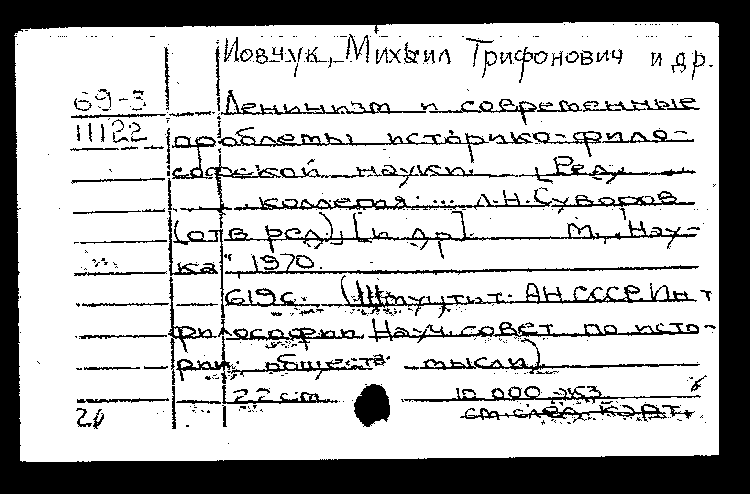 Иовчук, Михаил Трифонович и др.
69-3 Ленинизм и современные
11122 проблемы историко-фило-
софской науки. [Ред.
коллегия: ... Л.Н. Суворов
(отв ред), [и др]. М., "Нау-
ка", 1970.
619 с. (Шмуцтит: АН СССР. Ин-т
философии. Науч. совет по исто-
рии обществ мысли)
22 cm 10 000 экз
см. след. карт.
20